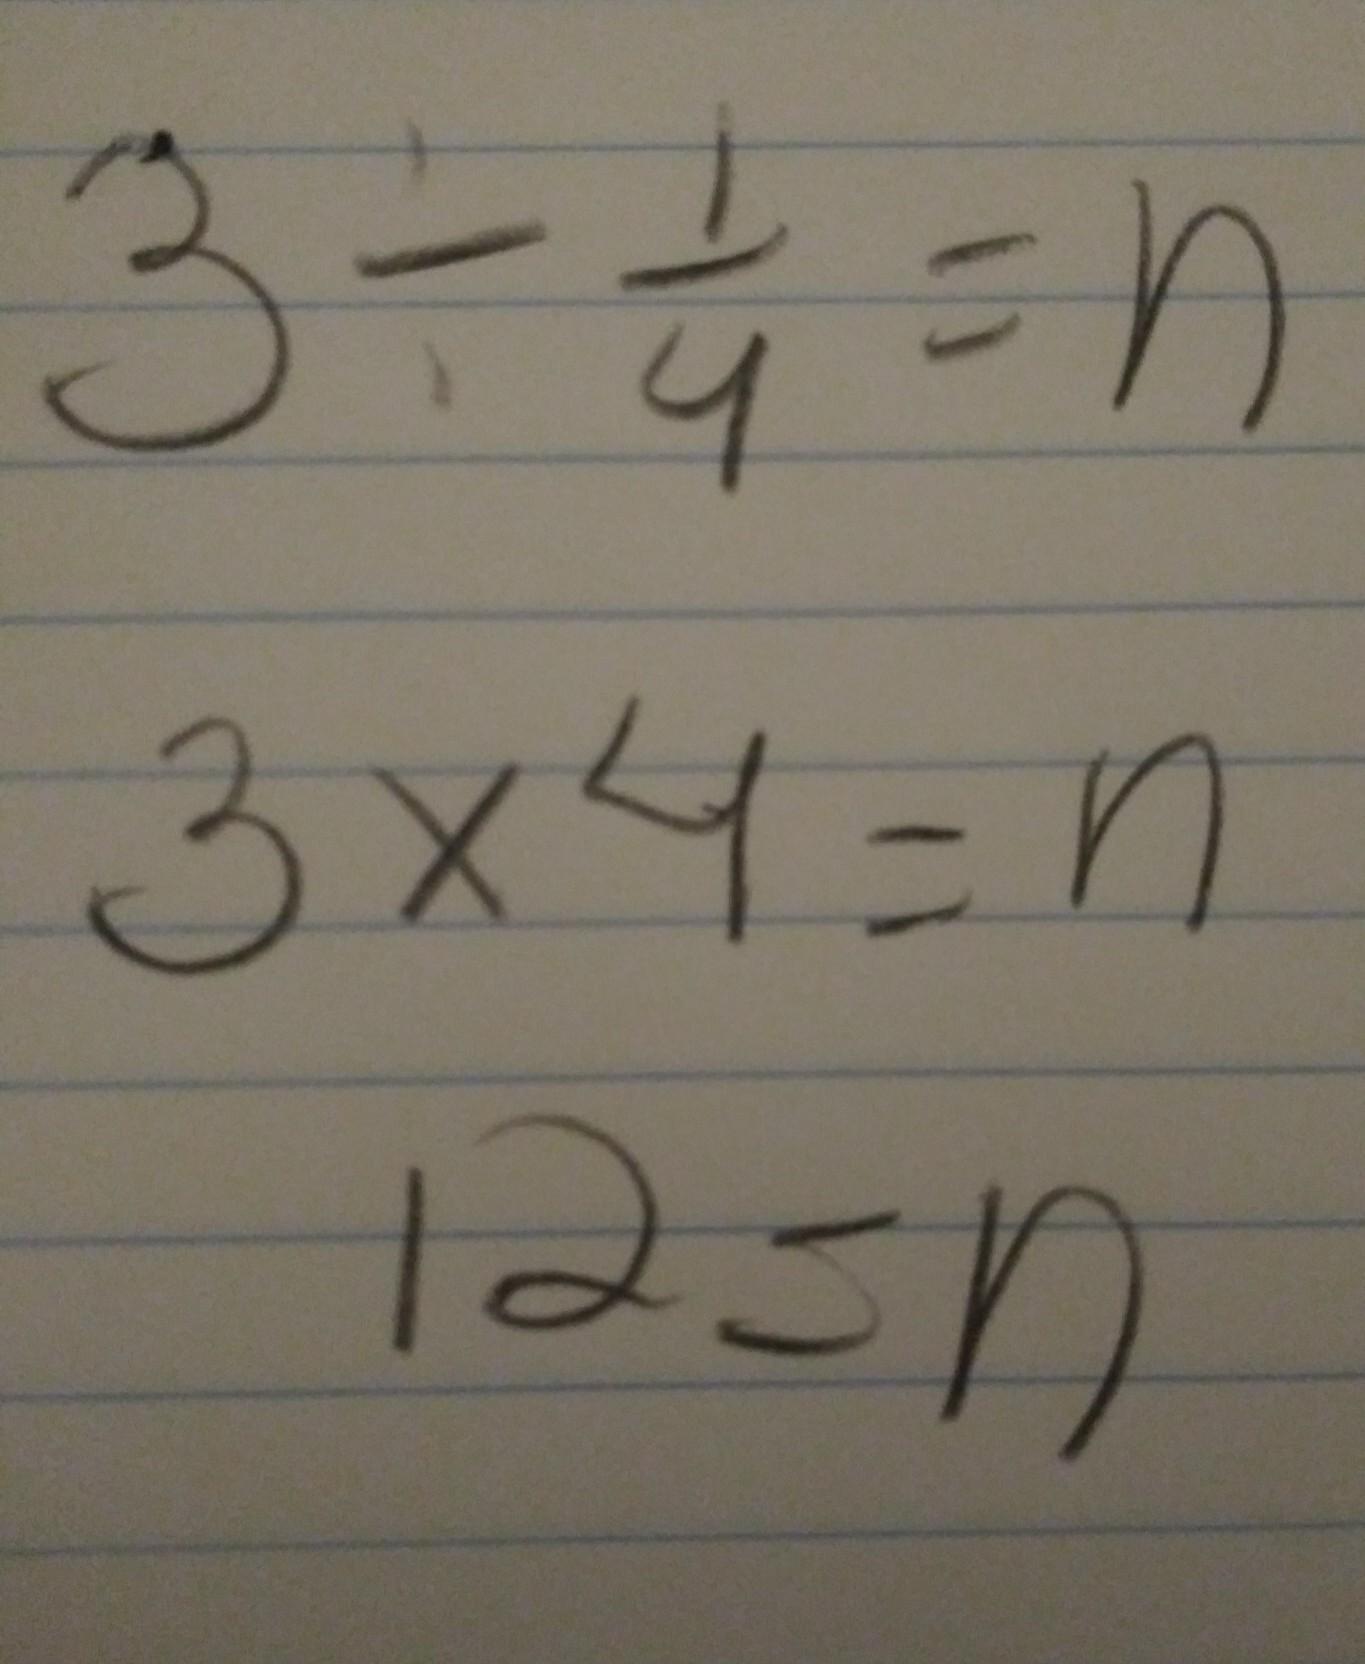 3 ÷ 1/4 = n
3 x 4 = n
12 = n